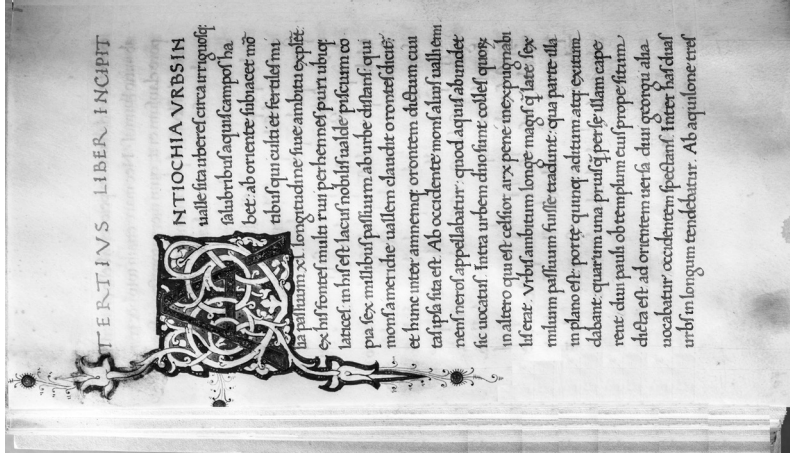 TERTIVS LIBER INCIPIT
ANTIOCHIA VRBS IN
ualle sita uberes circa irriguosq;
salubribus aquis campos ha
bet: ab oriente subiacet mō
tibus qui culti et fertiles mi
lia passuum xl. longitudine siue ambitu explēt.
ex his fontes multi riui perhennes puri ubiq;
latices. in his est lacus nobilis ualde piscium co
pia sex millibus passuum ab urbe distans: qui
mons a meridie uallem claudit orontes dicit̄.
et hunc inter amnemq; orontem dictum ciui
tas ipsa sita est. Ab occidente mons alius uallem
nens neros appellabatur: quod aquis abundet
sic uocatus. Intra urbem duo sunt colles quoꝝ
in altero qui est celsior arx pene inexpugnabi
lis erat. Vrbis ambitum longe magis q̄ late sex
milium passuum fuisse tradunt: qua parte illa
in plano est: porte quinq; aditum atq; exitum
dabant: quarum una prius q̄ per se illam cape
rent. diui pauli ob templum eius prope situm
dicta est: ad orientem uersa. diui georgii alia
uocabatur occidentem spectans. Inter has duas
urbs in longum tendebatur. Ab aquilone tres